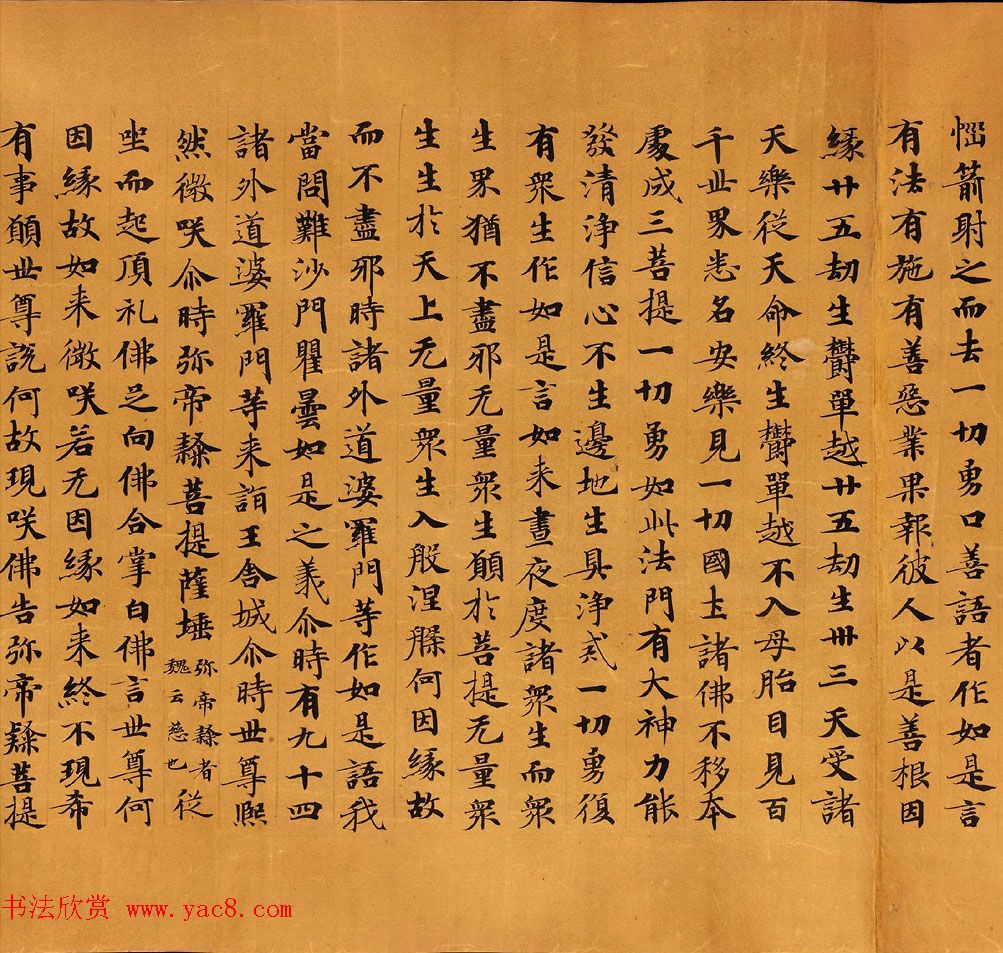 惱箭射之而去一切勇口善語者作如是言
有法有施有善惡業果報彼人以是善根因
緣廿五劫生欝單越廿五劫生卅三天受諸
天樂從天命終生欝單越不入母胎目見百
千世界悉名安樂見一切國土諸佛不移本
處成三菩提一切勇如此法門有大神力能
發清淨信心不生邊地生具淨戒一切勇復
有衆生作如是言如来晝夜度諸衆生而衆
生界猶不盡邪无量衆生願於菩提无量衆
生生於天上无量衆生入般涅槃何因緣故
而不盡邪時諸外道婆羅門等作如是語我
當問難沙門瞿曇如是之義尒時有九十四
諸外道婆羅門等来詣王舍城尒時世尊熈
然微咲尒時弥帝隸菩提薩埵弥帝隸者魏云慈也從
坐而起頂礼佛足向佛合掌白佛言世尊何
因緣故如来微咲若无因緣如来終不現希
有事願世尊說何故現咲佛告弥帝隸菩提
书法欣赏 www.yac8.com